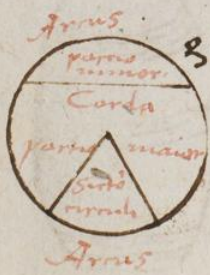 Arcus
portio
minor
Corda
portio maior
Sectō
circuli
Arcus